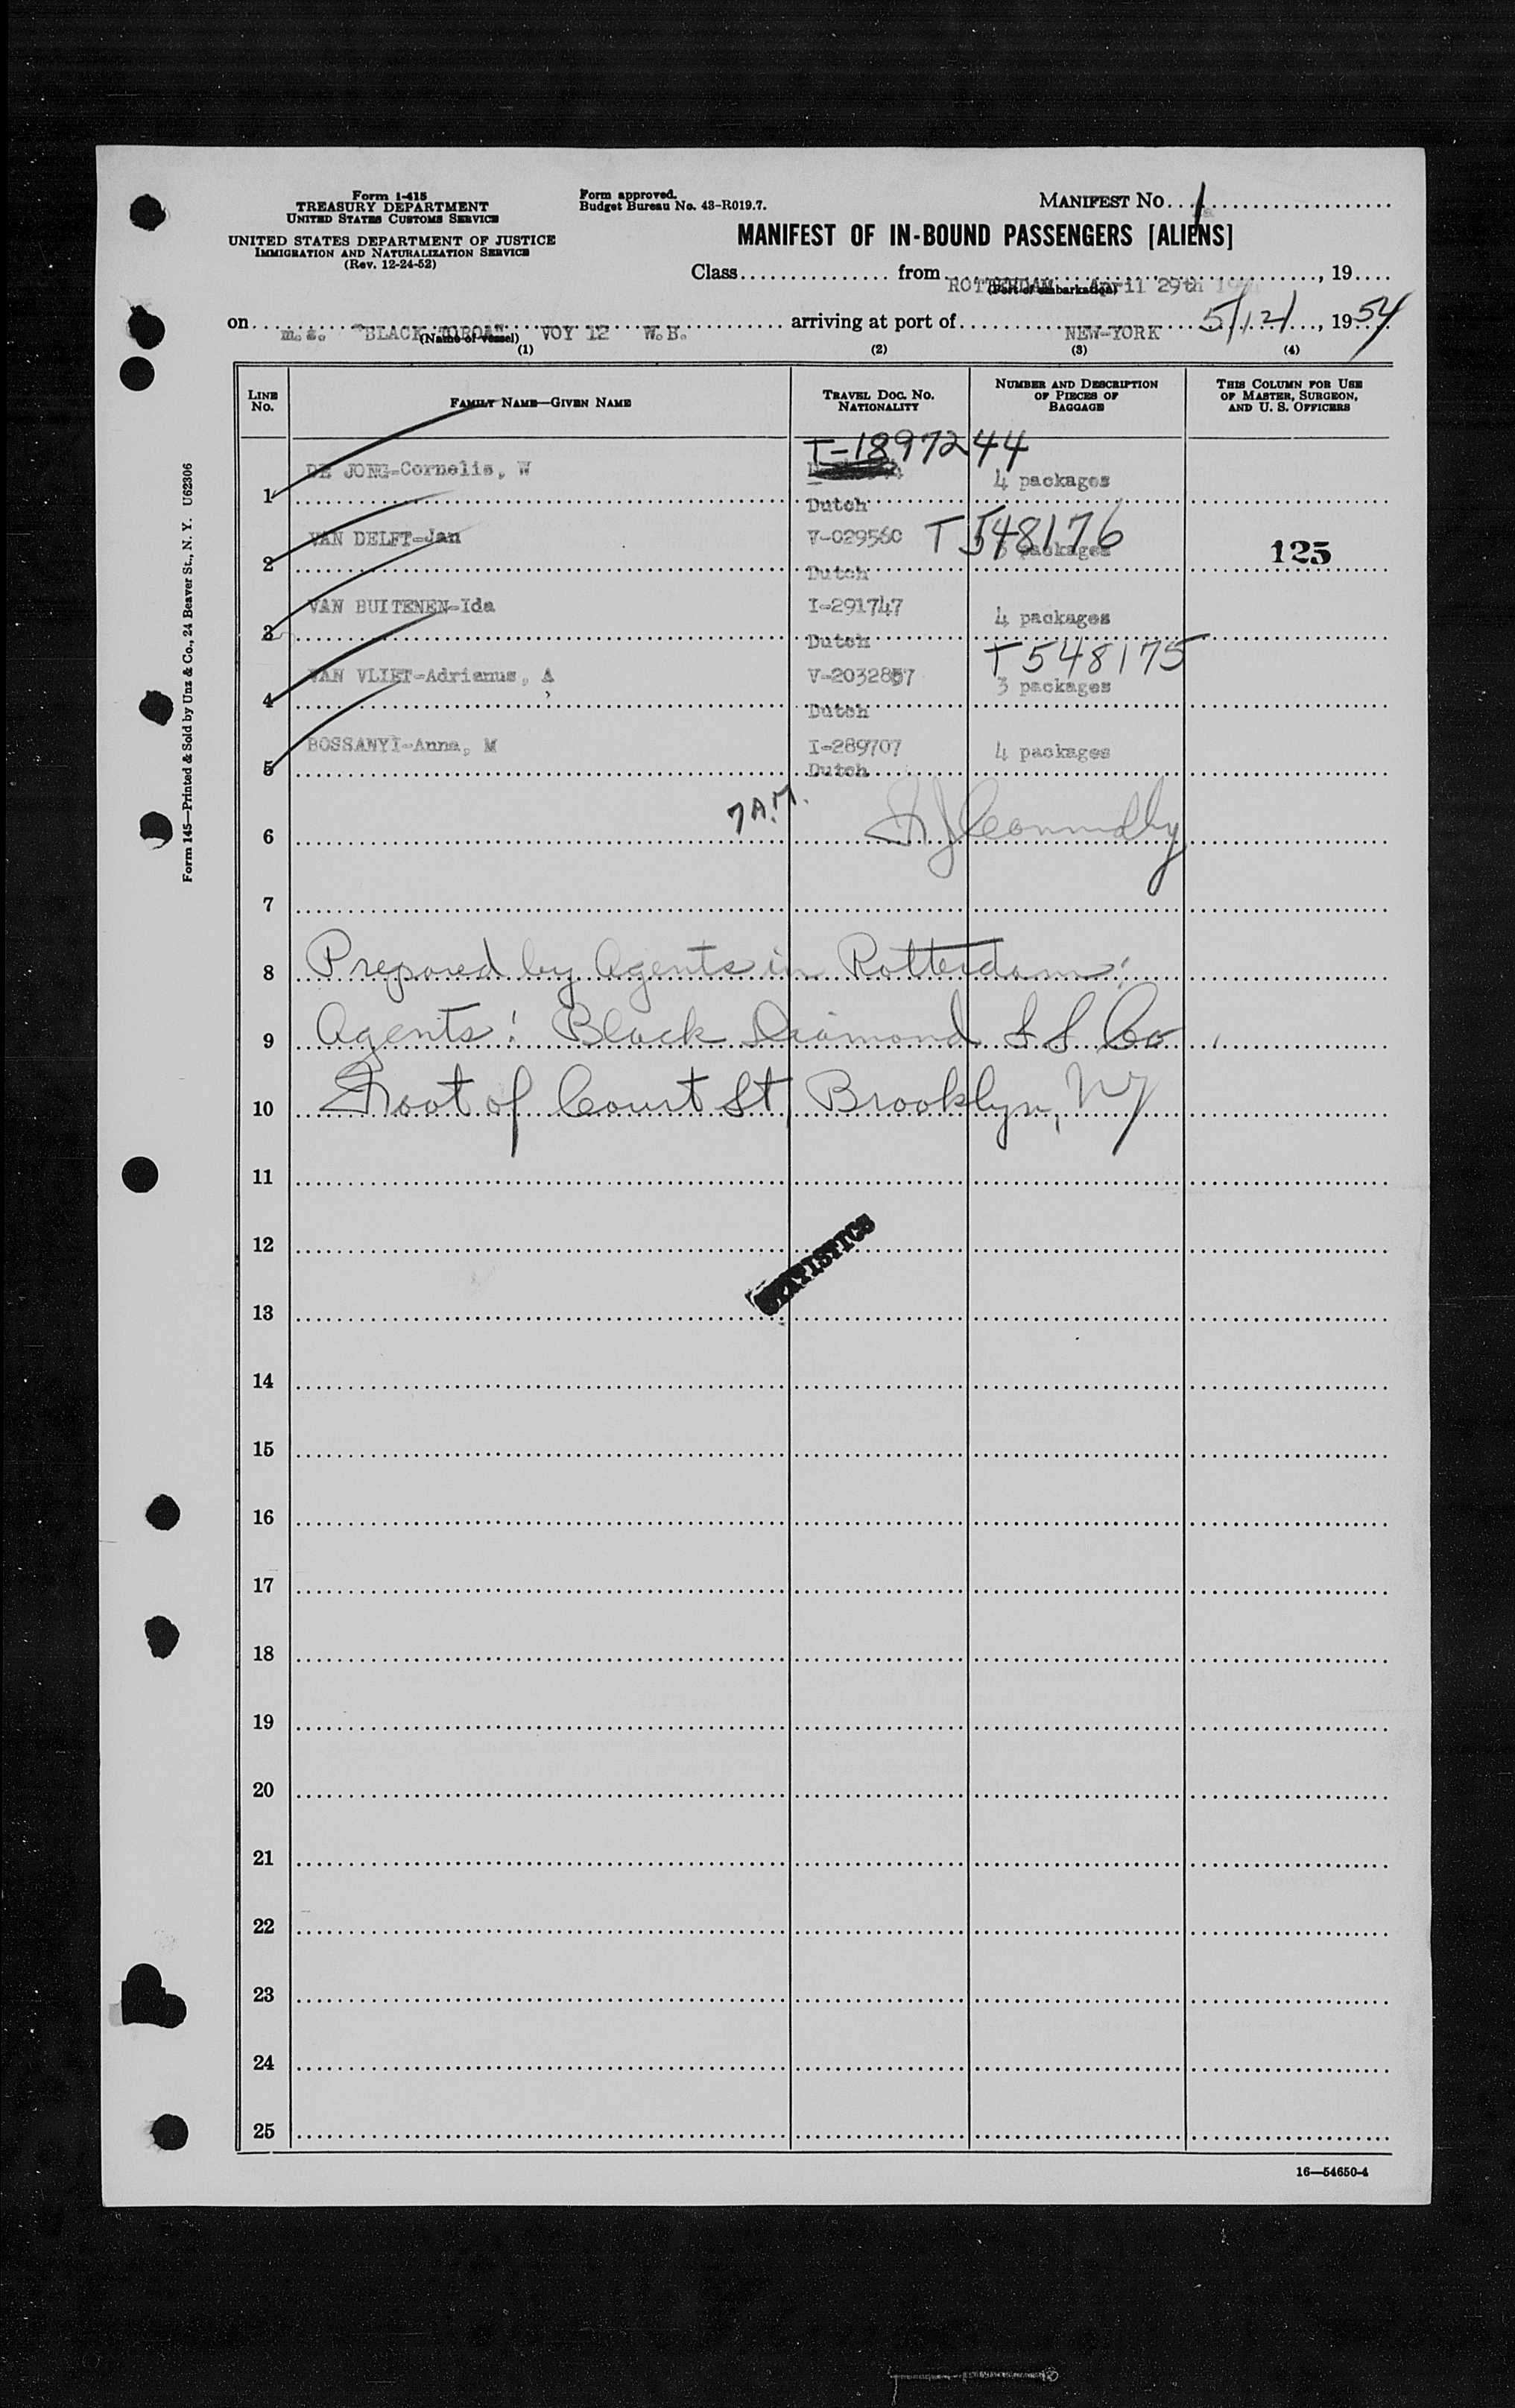 Form I-415
TREASURY DEPARTMENT
UNITED STATES CUSTOMS SERVICE
UNITED STATES DEPARTMENT OF JUSTICE
IMMIGRATION AND NATURALIZATION SERVICE
(Rev. 12-24-52)
Form approved.
Budget Bureau No. 43-R019.7.
MANIFEST NO. 1
MANIFEST OF IN-BOUND PASSENGERS [ALIENS]
Class from ROTTERDAM April 29th , 19
(Port of embarkation)
on m.s. "BLACK VOY 12 W.B. arriving at port of NEW-YORK 5/12/, 1954
(Name of vessel)
(1) (2) (3) (4)
LINE NO. FAMILY NAME—GIVEN NAME TRAVEL DOC. NO. NATIONALITY NUMBER AND DESCRIPTION OF PIECES OF BAGGAGE THIS COLUMN FOR USE OF MASTER, SURGEON, AND U. S. OFFICERS
T-1897244
1 DE JONG-Cornelis, W 4 packages
Dutch
2 VAN DELFT-Jan V-029560 T548176 packages 125
Dutch
3 VAN BUITENEN-Ida I-291747 4 packages
Dutch
T548175
4 VAN VLIET-Adrianus, A V-2032857 3 packages
Dutch
5 BOSSANYI-Anna, M I-289707 4 packages
Dutch
7 A.M.
6
7
8 Prepared by Agents in Rotterdam:
9 Agents: Black Diamond S S Co
10 Foot of Court St, Brooklyn, NY
11
STATISTICS
12
13
14
15
16
17
18
19
20
21
22
23
24
25
16—54650-4
Form 145—Printed & Sold by Unz & Co., 24 Beaver St., N. Y. U62306